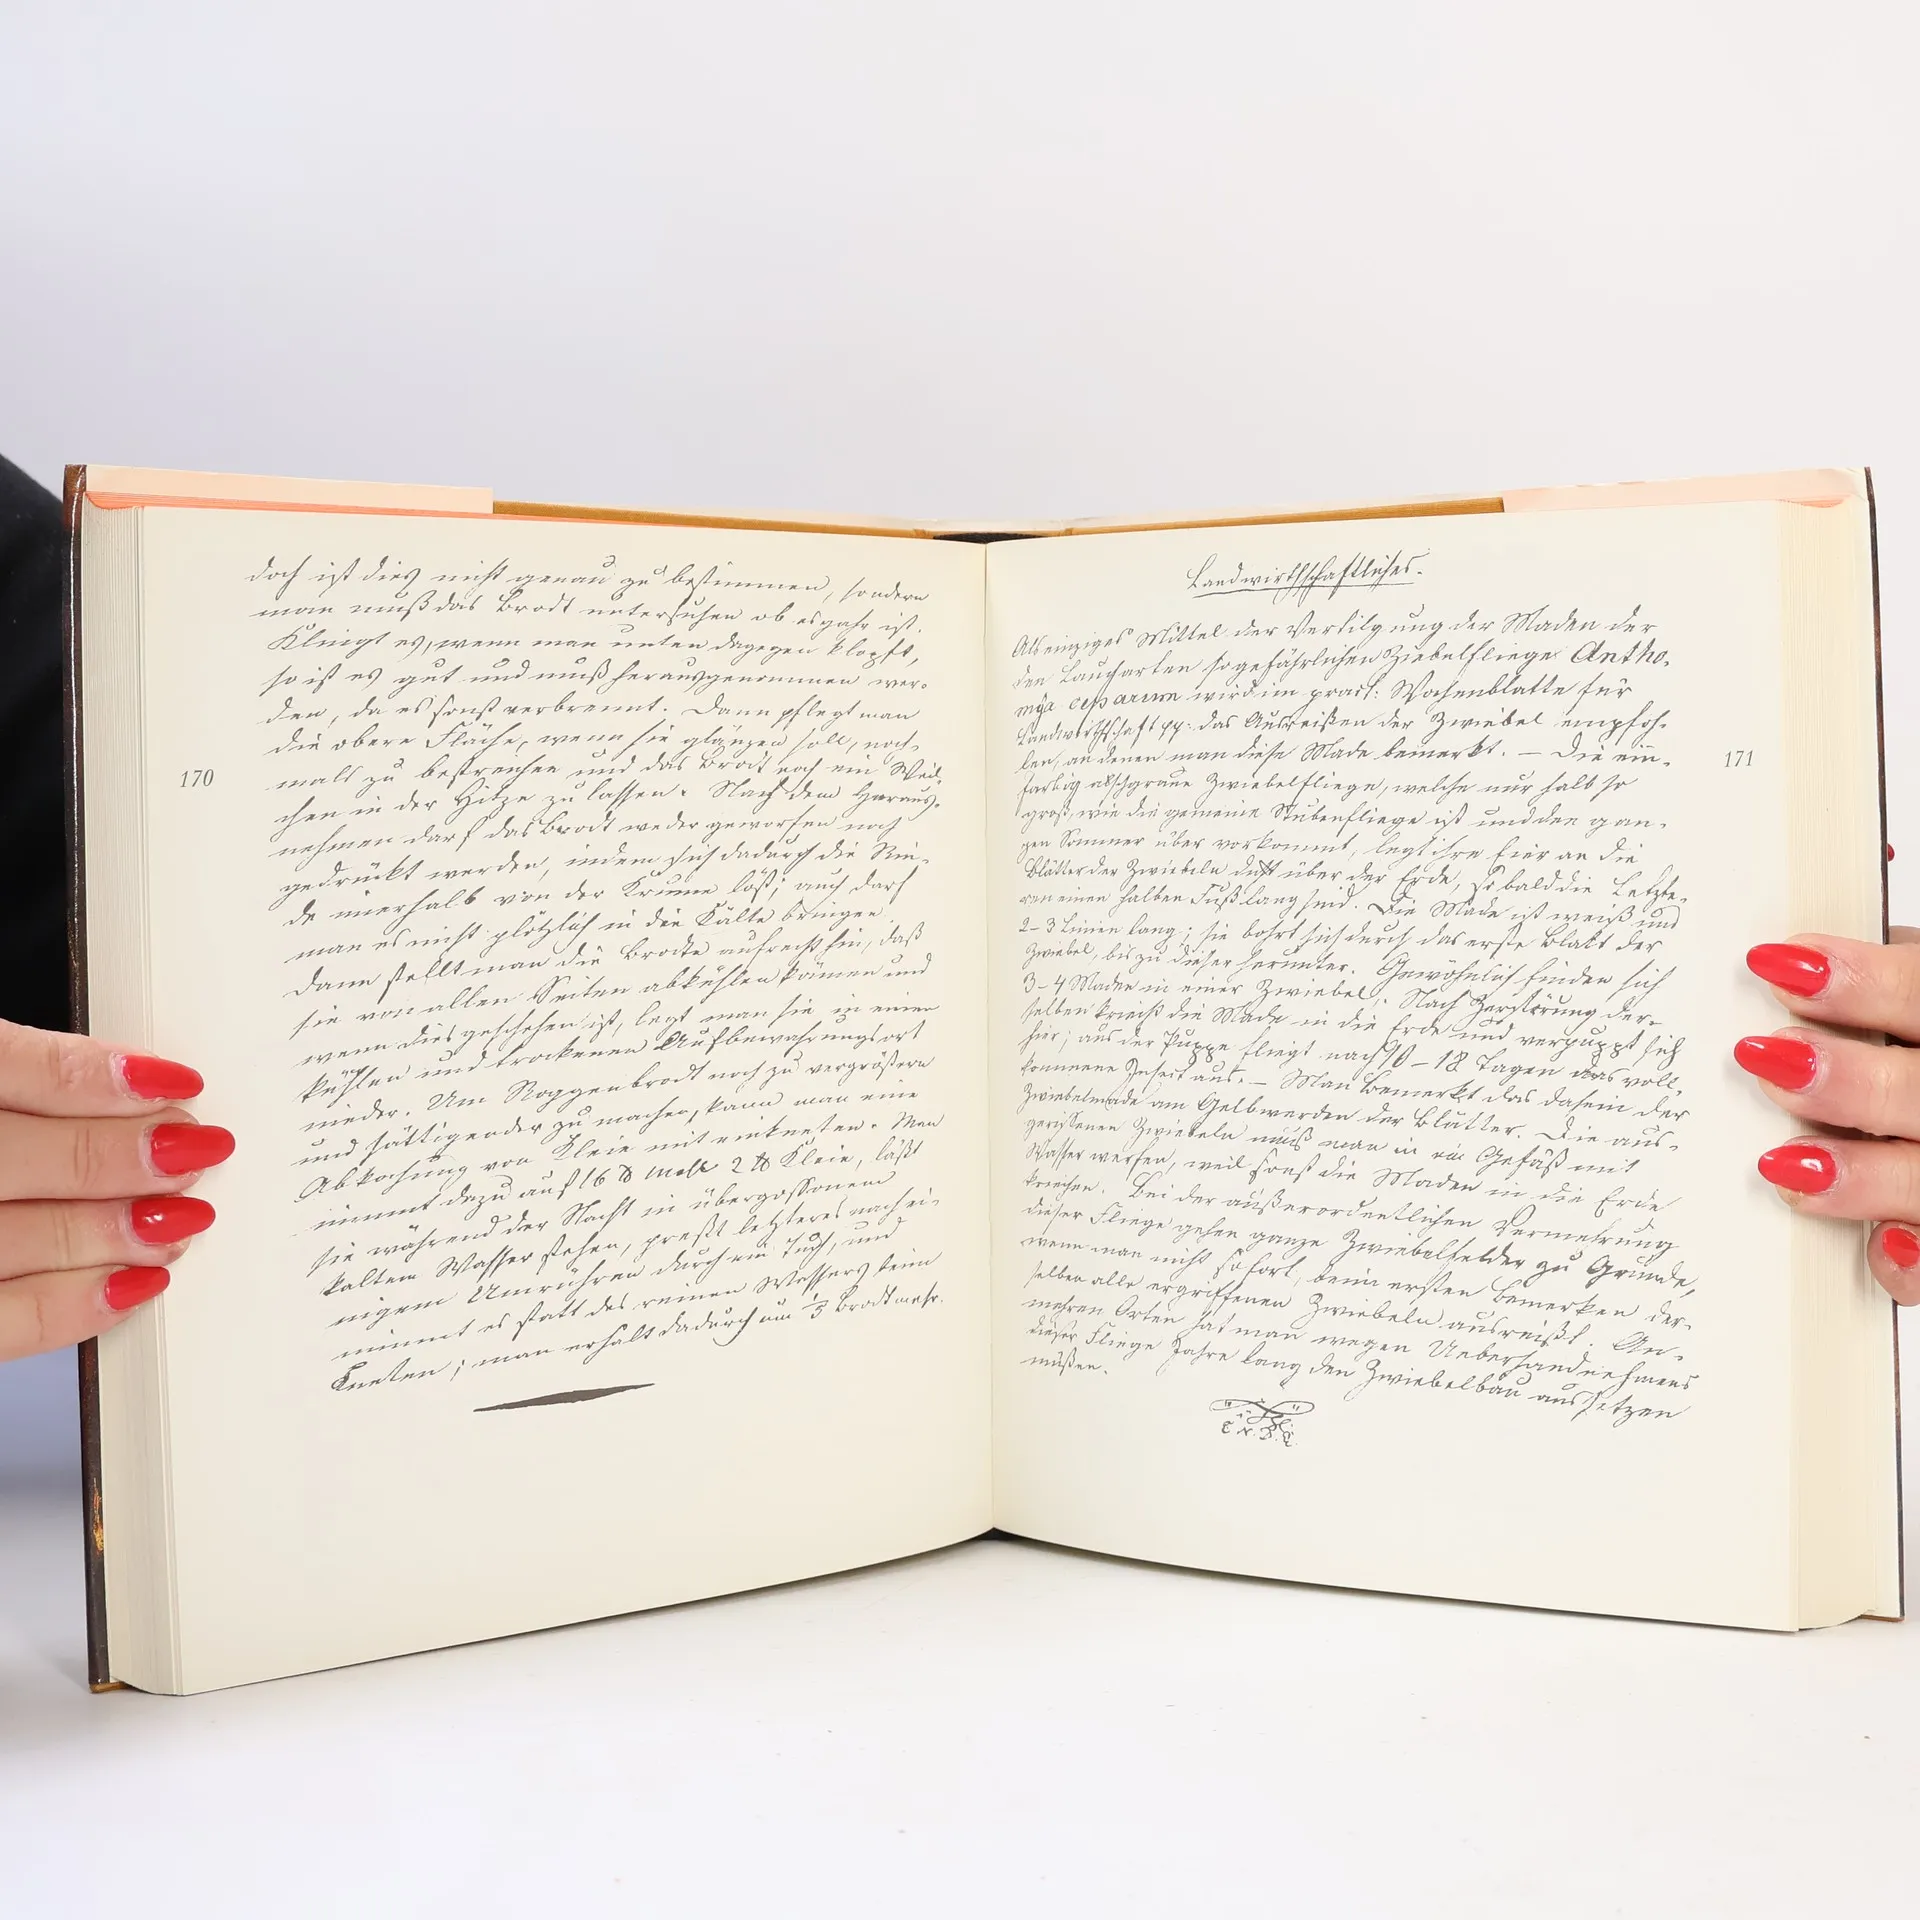 doch ist dies nicht genau zu bestimmen, sondern
man muß das Brodt untersuchen ob es gahr ist.
Klingt es, wenn man unten dagegen klopft,
so ist es gut und muß herausgenommen wer-
den, da es sonst verbrennt. Dann pflegt man
die obere Fläche, wenn sie glänzen soll, noch-
mals zu bestreichen und das Brodt noch ein Weil-
chen in der Hitze zu lassen. Nach dem Heraus-
nehmen darf das Brodt weder geworfen noch
gedrückt werden, indem sich dadurch die Rin-
de innerhalb von der Krume löst; auch darf
man es nicht plötzlich in die Kälte bringen.
Dann stellt man die Brodte aufrecht hin, daß
sie von allen Seiten abkühlen können und
wenn dies geschehen ist, legt man sie in einen
kühlen und trockenen Aufbewahrungsort
nieder. Um Roggenbrodt noch zu vergrößern
und sättigender zu machen, kann man eine
Abkochung von Kleie mit einkneten. Man
nimmt dazu auf 16 ℔ Mehl 2 ℔ Kleie, läßt
sie während der Nacht in übergossenem
kaltem Wasser stehen, preßt letzteres nach ei-
nigem Umrühren durch ein Tuch, und
nimmt es statt des reinen Wassers beim
Kneten; man erhält dadurch um 1/5 Brodt mehr.
170
Landwirthschaftliches.
Als einziges Mittel der Vertilgung der Maden der
den Laucharten so gefährlichen Ziebelfliege Antho-
mya ceparum wird im pract: Wochenblatte für
Landwirthschaft pp: das Ausreißen der Zwiebel empfoh-
len, an denen man diese Made bemerkt. — Die ein-
farbig aschgraue Zwiebelfliege, welche nur halb so
groß, wie die gemeine Stubenfliege ist und den gan-
zen Sommer über vorkommt, legt ihre Eier an die
Blätter der Zwiebeln dicht über der Erde, so bald die Letzte-
ren einen halben Fuß lang sind. Die Made ist weiß und
2–3 Linien lang; sie bohrt sich durch das erste Blatt der
Zwiebel, bis zu dieser herunter. Gewöhnlich finden sich
3–4 Maden in einer Zwiebel. Nach Zerstörung der-
selben kriecht die Made in die Erde und verpuppt sich
hier; aus der Puppe fliegt nach 10–18 Tagen das voll-
kommene Insect aus. — Man bemerkt das Dasein der
Zwiebelmade am Gelbwerden der Blätter. Die aus-
gerissenen Zwiebeln muß man in ein Gefäß mit
Wasser werfen, weil sonst die Maden in die Erde
kriechen. Bei der außerordentlichen Vermehrung
dieser Fliege gehen ganze Zwiebelfelder zu Grunde,
wenn man nicht sofort, beim ersten Bemerken der-
selben alle ergriffenen Zwiebeln ausreißt. An
mehren Orten hat man wegen Ueberhandnehmens
dieser Fliege Jahre lang den Zwiebelbau aussetzen
müßen.
171